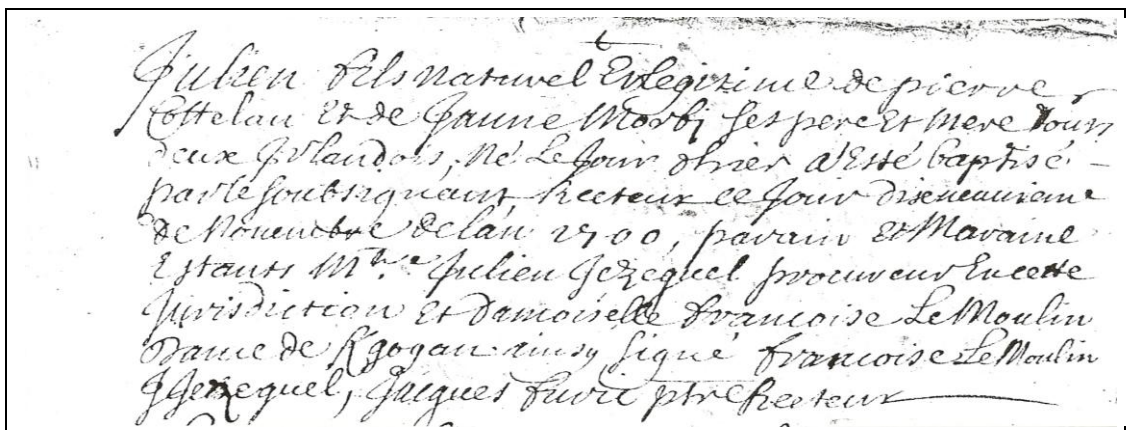 Julien fils naturel Et legitime de pierre
Cottelan Et de Janne Morbj ses pere Et Mere tous
deux Jrlandois, Né Le Jour d'hier a Esté baptisé -
par le soubsignant Recteur ce Jour diseneuvieme
de Nouembre de l'an 1700, parain Et Maraine
Estants Mtre Julien Jezequel procureur En cette
Jurisdiction Et Damoiselle francoise Le Moulin
Dame de Kgogan ainsy signé francoise Le Moulin
J Jezequel, Jacques furic ptre Recteur